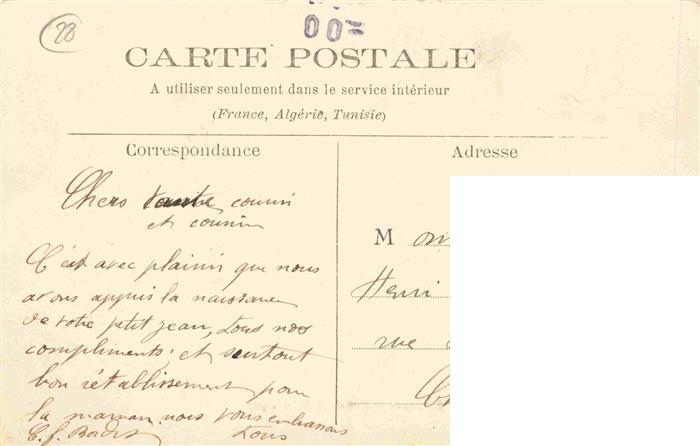 28
00=
CARTE POSTALE
A utiliser seulement dans le service intérieur
(France, Algérie, Tunisie)
Correspondance
Adresse
Chers cousin
et cousine
C'est avec plaisir que nous
avons appris la naissance
de votre petit jean, tous nos
compliments, et surtout
bon rétablissement pour
la maman nous vous embrassons
tous
M
Henri
rue